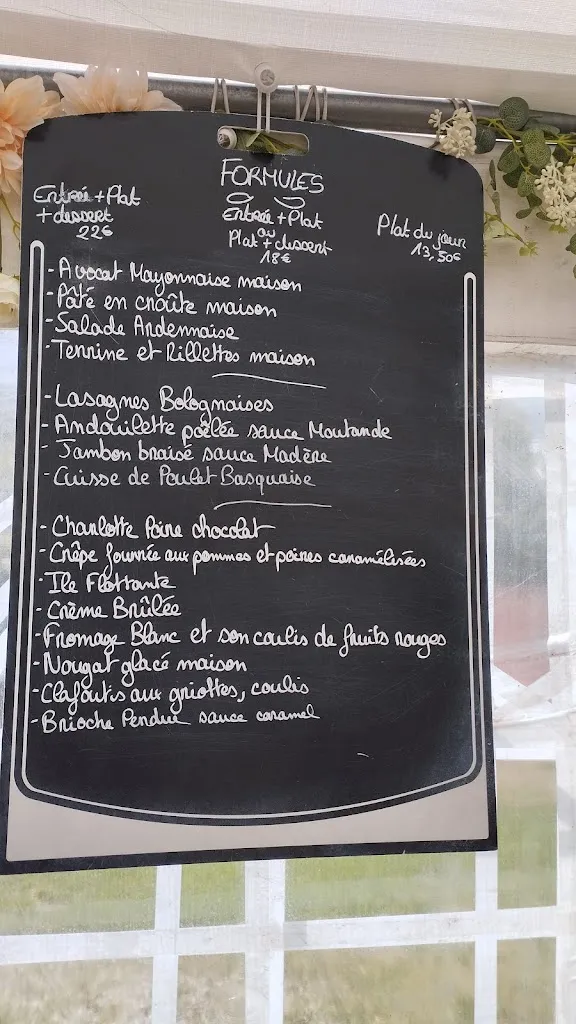 FORMULES
Entrée + Plat
+ dessert
22€
Entrée + Plat
ou
Plat + dessert
18€
Plat du jour
13,50€
- Avocat Mayonnaise maison
- Pâté en croûte maison
- Salade Ardennaise
- Terrine et Rillettes maison
- Lasagnes Bolognaises
- Andouillette poêlée sauce Moutarde
- Jambon braisé sauce Madère
- Cuisse de Poulet Basquaise
- Charlotte Poire chocolat
- Crêpe fourrée aux pommes et poires caramélisées
- Ile Flottante
- Crème Brûlée
- Fromage Blanc et son coulis de fruits rouges
- Nougat glacé maison
- Clafoutis aux griottes, coulis
- Brioche Perdue sauce caramel